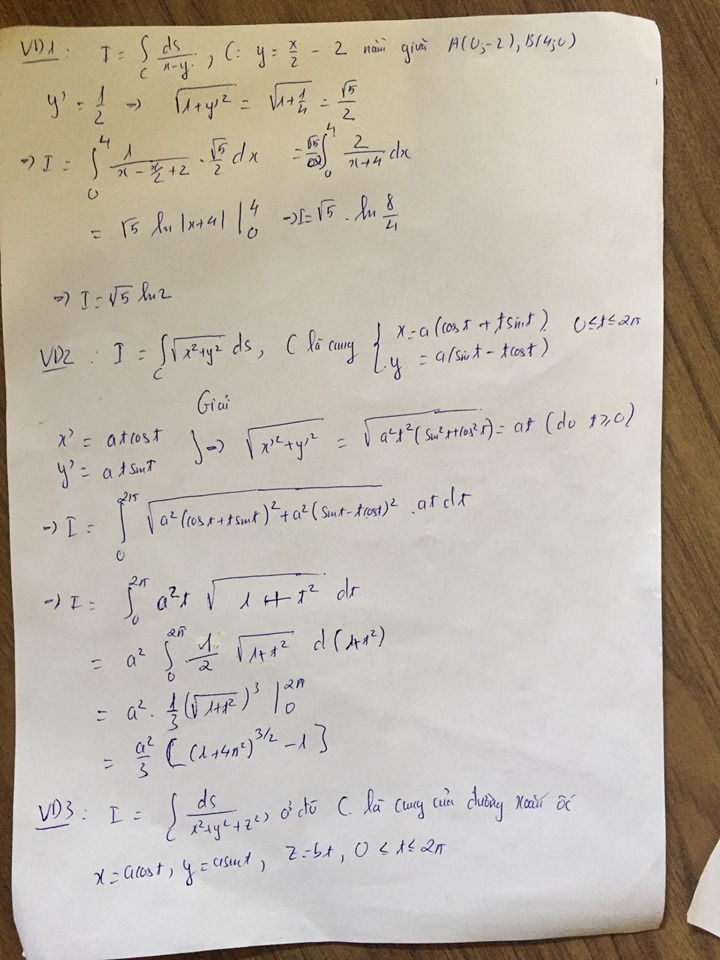 VD1: I = ∫_C ds/(x-y), C: y = x/2 - 2 nằm giữa A(0,-2), B(4,0)
y' = 1/2 => √(1+y'²) = √(1+1/4) = √5/2
=> I = ∫₀⁴ 1/(x - x/2 + 2) · √5/2 dx = √5/2 ∫₀⁴ 2/(x+4) dx
= √5 ln|x+4| |₀⁴ => I = √5 · ln 8/4
=> I = √5 ln2
VD2: I = ∫_C √(x²+y²) ds, C là cung { x = a(cost + tsint) 0≤t≤2π
y = a(sint - tcost)
Giải
x' = atcost
y' = atsint } => √(x'²+y'²) = √(a²t²(sin²t+cos²t)) = at (do t≥0)
=> I = ∫₀^{2π} √(a²(cost+tsint)²+a²(sint-tcost)²) · at dt
=> I = ∫₀^{2π} a²t √(1+t²) dt
= a² ∫₀^{2π} 1/2 √(1+t²) d(1+t²)
= a² · 1/3 (√(1+t²))³ |₀^{2π}
= a²/3 [(1+4π²)^{3/2} - 1]
VD3: I = ∫_C ds/(x²+y²+z²), ở đó C là cung của đường xoắn ốc
x = acost, y = asint, z = bt, 0 ≤ t ≤ 2π